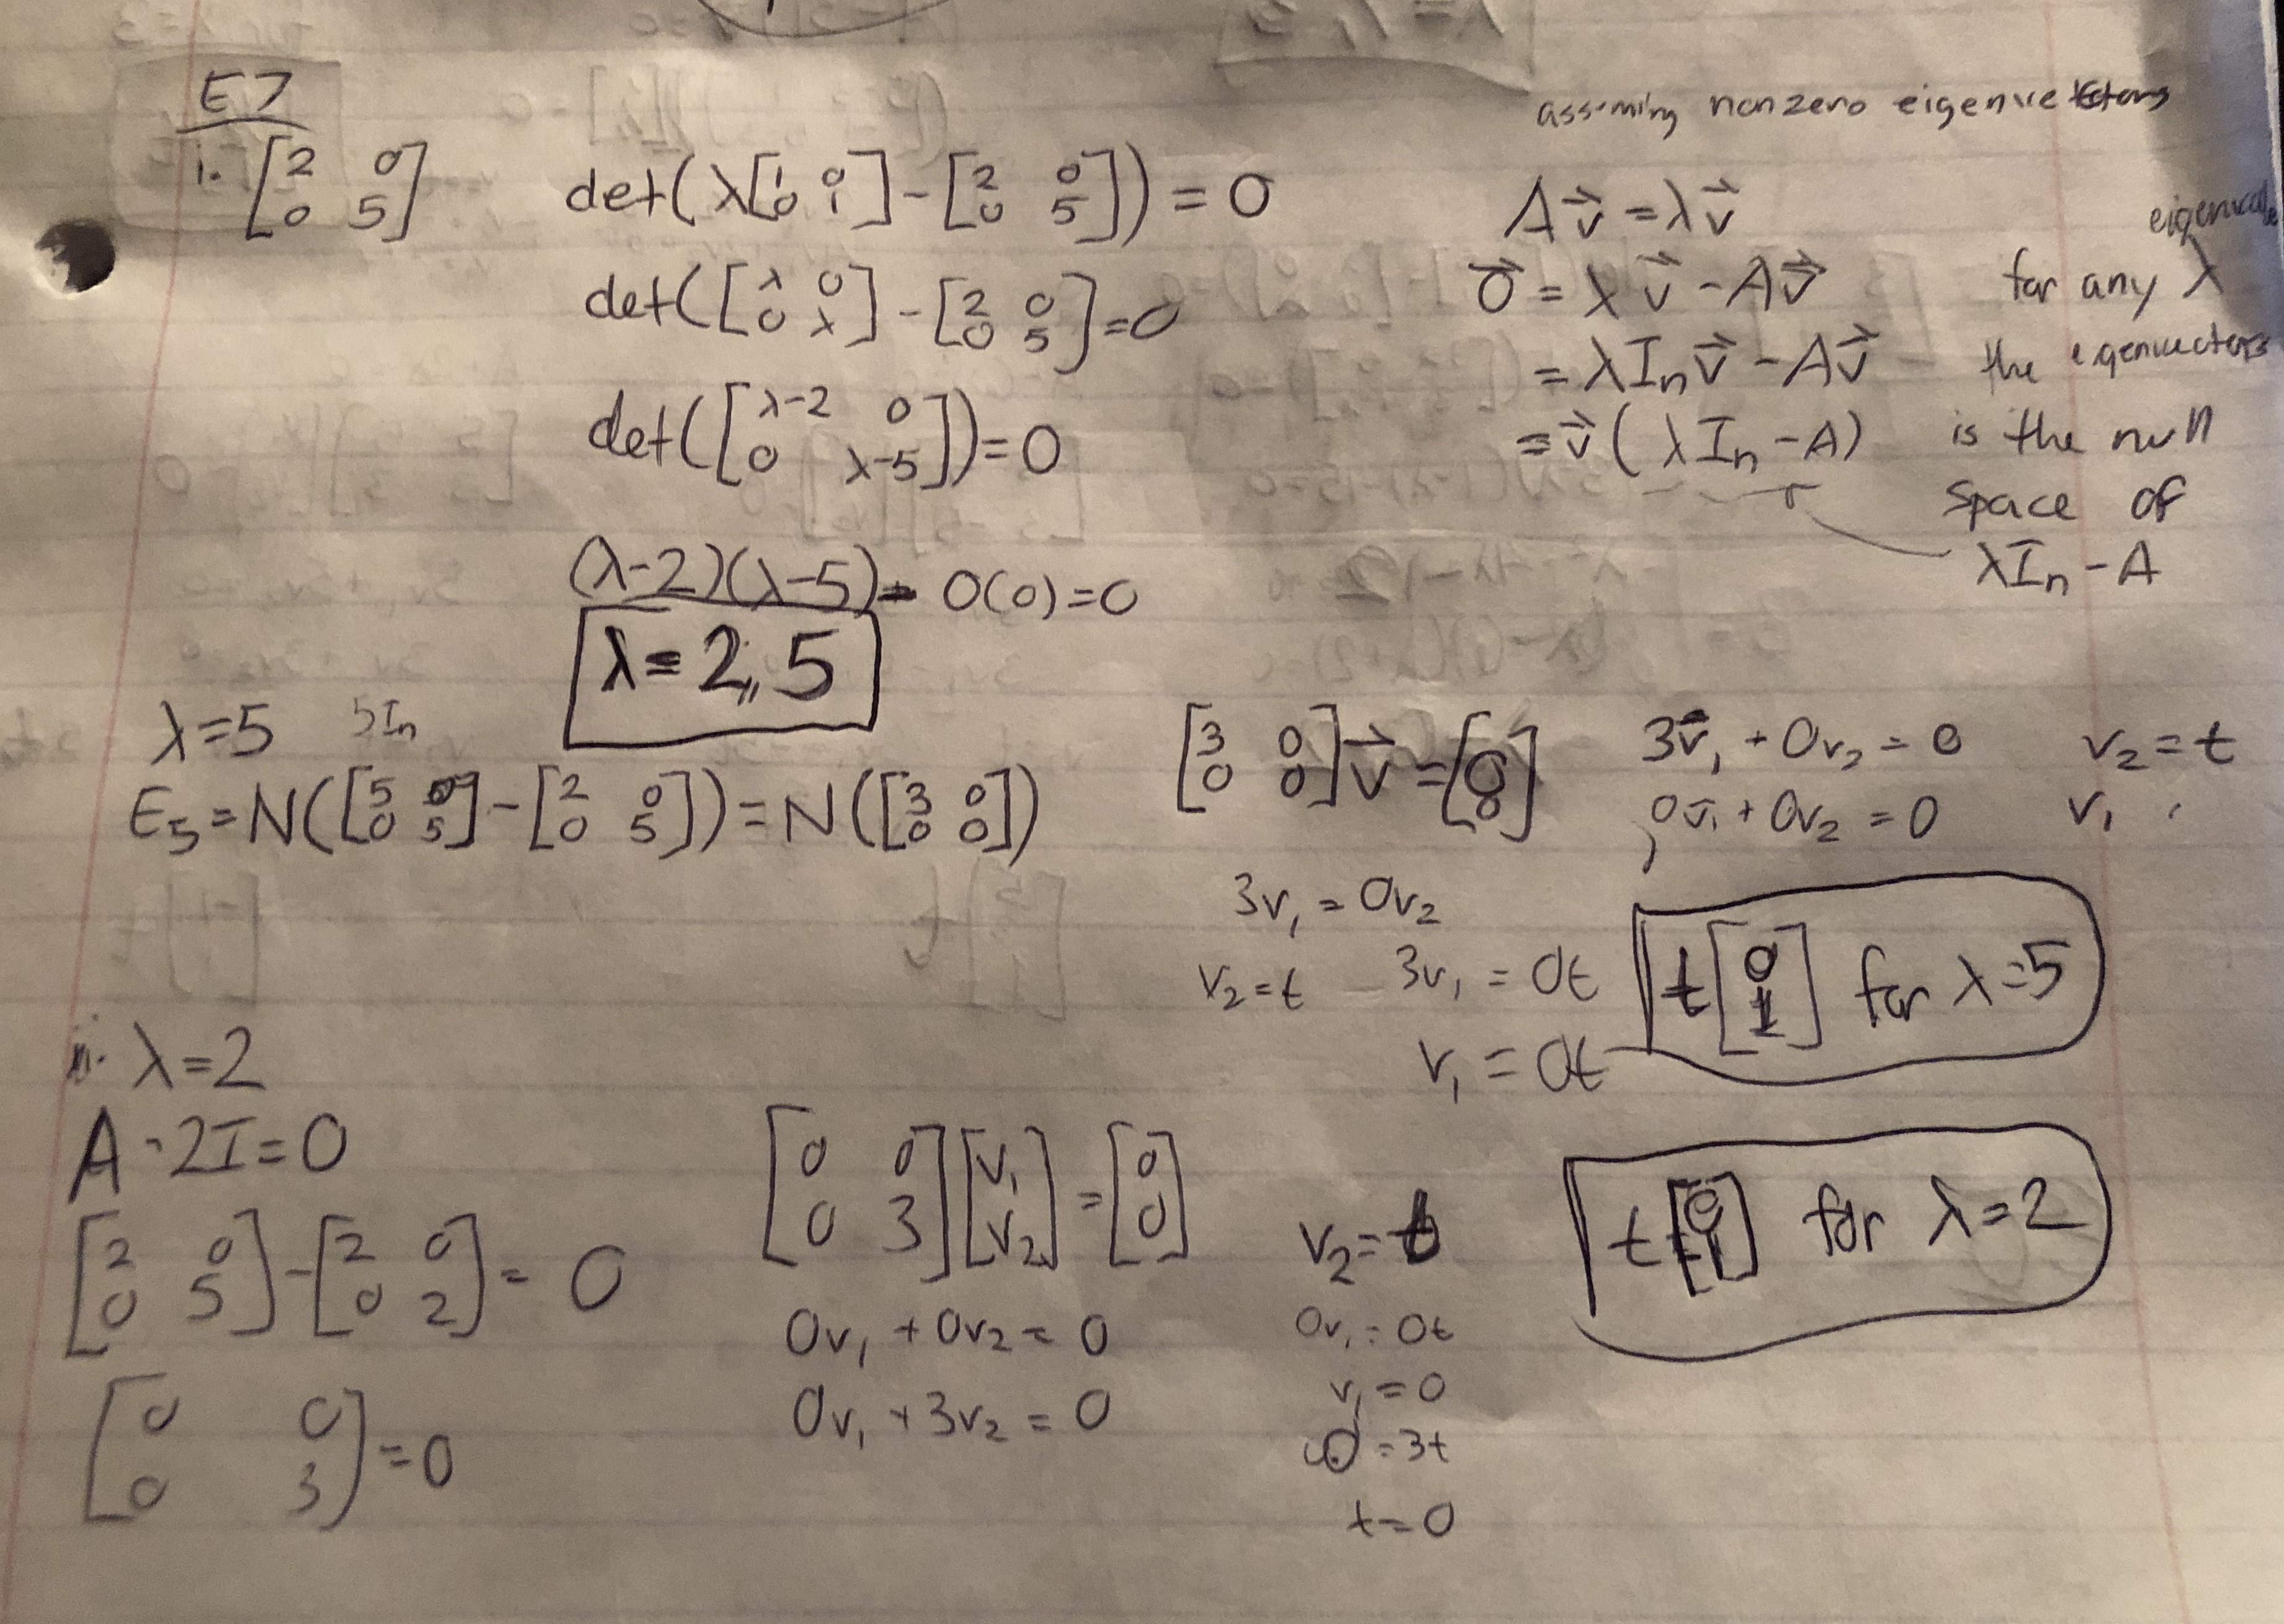 E7
i. [2 0; 0 5]
det(λ[1 0; 0 1] - [2 0; 0 5]) = 0
det([λ 0; 0 λ] - [2 0; 0 5] = 0
det([λ-2 0; 0 λ-5]) = 0
(λ-2)(λ-5) - 0(0) = 0
λ = 2, 5
assuming nonzero eigenvectors
Av⃗ = λv⃗
0⃗ = λv⃗ - Av⃗
= λIₙv⃗ - Av⃗
= v⃗(λIₙ - A)
for any λ
the eigenvectors
is the null
space of
λIₙ - A
λ = 5 5Iₙ
E₅ = N([5 0; 0 5] - [2 0; 0 5]) = N([3 0; 0 0])
[3 0; 0 0]v⃗ = [0; 0]
3v₁ + 0v₂ = 0
0v₁ + 0v₂ = 0
v₂ = t
v₁
3v₁ = 0v₂
v₂ = t 3v₁ = 0t
v₁ = 0t
t[0; 1] for λ = 5
ii. λ = 2
A - 2I = 0
[2 0; 0 5] - [2 0; 0 2] = 0
[0 0; 0 3] = 0
[0 0; 0 3][v₁; v₂] = [0; 0]
0v₁ + 0v₂ = 0
0v₁ + 3v₂ = 0
v₂ = t
0v₁ = 0t
v₁ = 0
0 = 3t
t = 0
for λ = 2